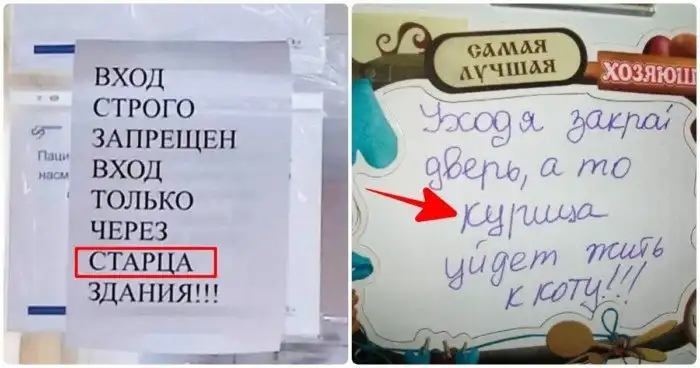 ВХОД
СТРОГО
ЗАПРЕЩЕН
ВХОД
ТОЛЬКО
ЧЕРЕЗ
СТАРЦА
ЗДАНИЯ!!!
Паци
насм
САМАЯ
ЛУЧШАЯ
ХОЗЯЮШ
Уходя закрой
дверь, а то
курица
уйдет жить
к коту!!!